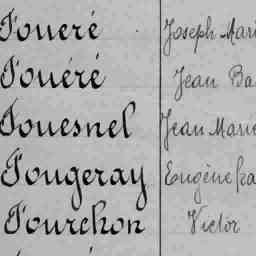 Foueré Joseph Mari
Fouéré Jean Ba
Fouesnel Jean Marie
Fougeray Eugène
Fourchon Victor